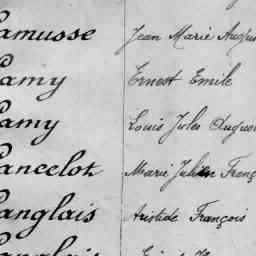 Lamusse Jean Marie Augus
Lamy Ernest Emile
Lamy Louis Jules Augus
Lancelot Marie Julien Franç
Langlais Aristide François
Langlais